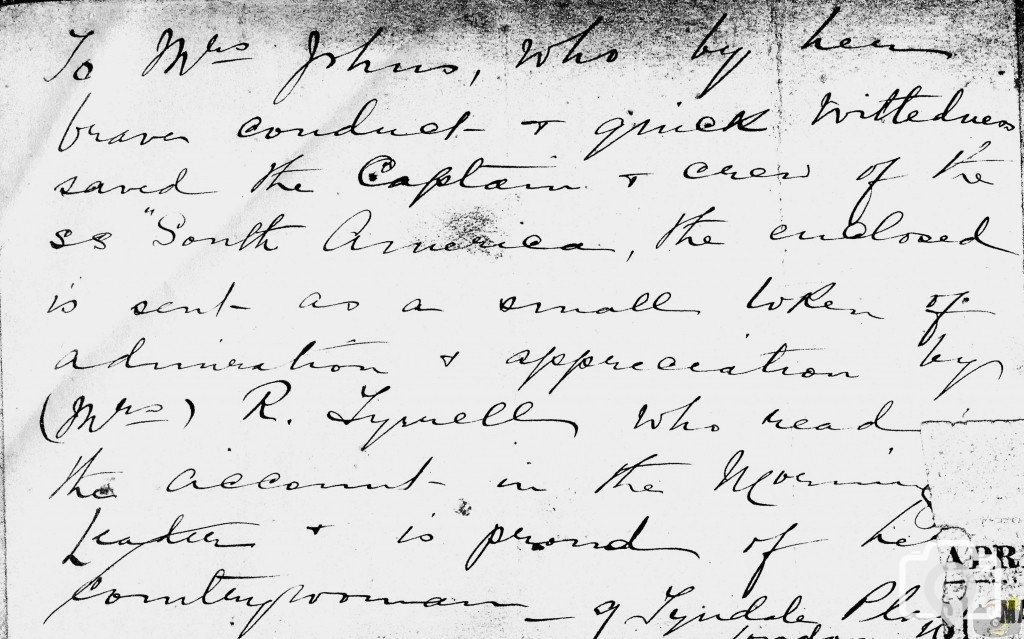 To Mrs Johns, who by her
brave conduct & quick wittedness
saved the Captain & crew of the
ss "South America, the enclosed
is sent as a small token of
admiration & appreciation by
(Mrs) R. Tyrrell who read
the account in the Morning
Leader & is proud of her
countrywoman _ 9 Tyndale Pla
APR
MA